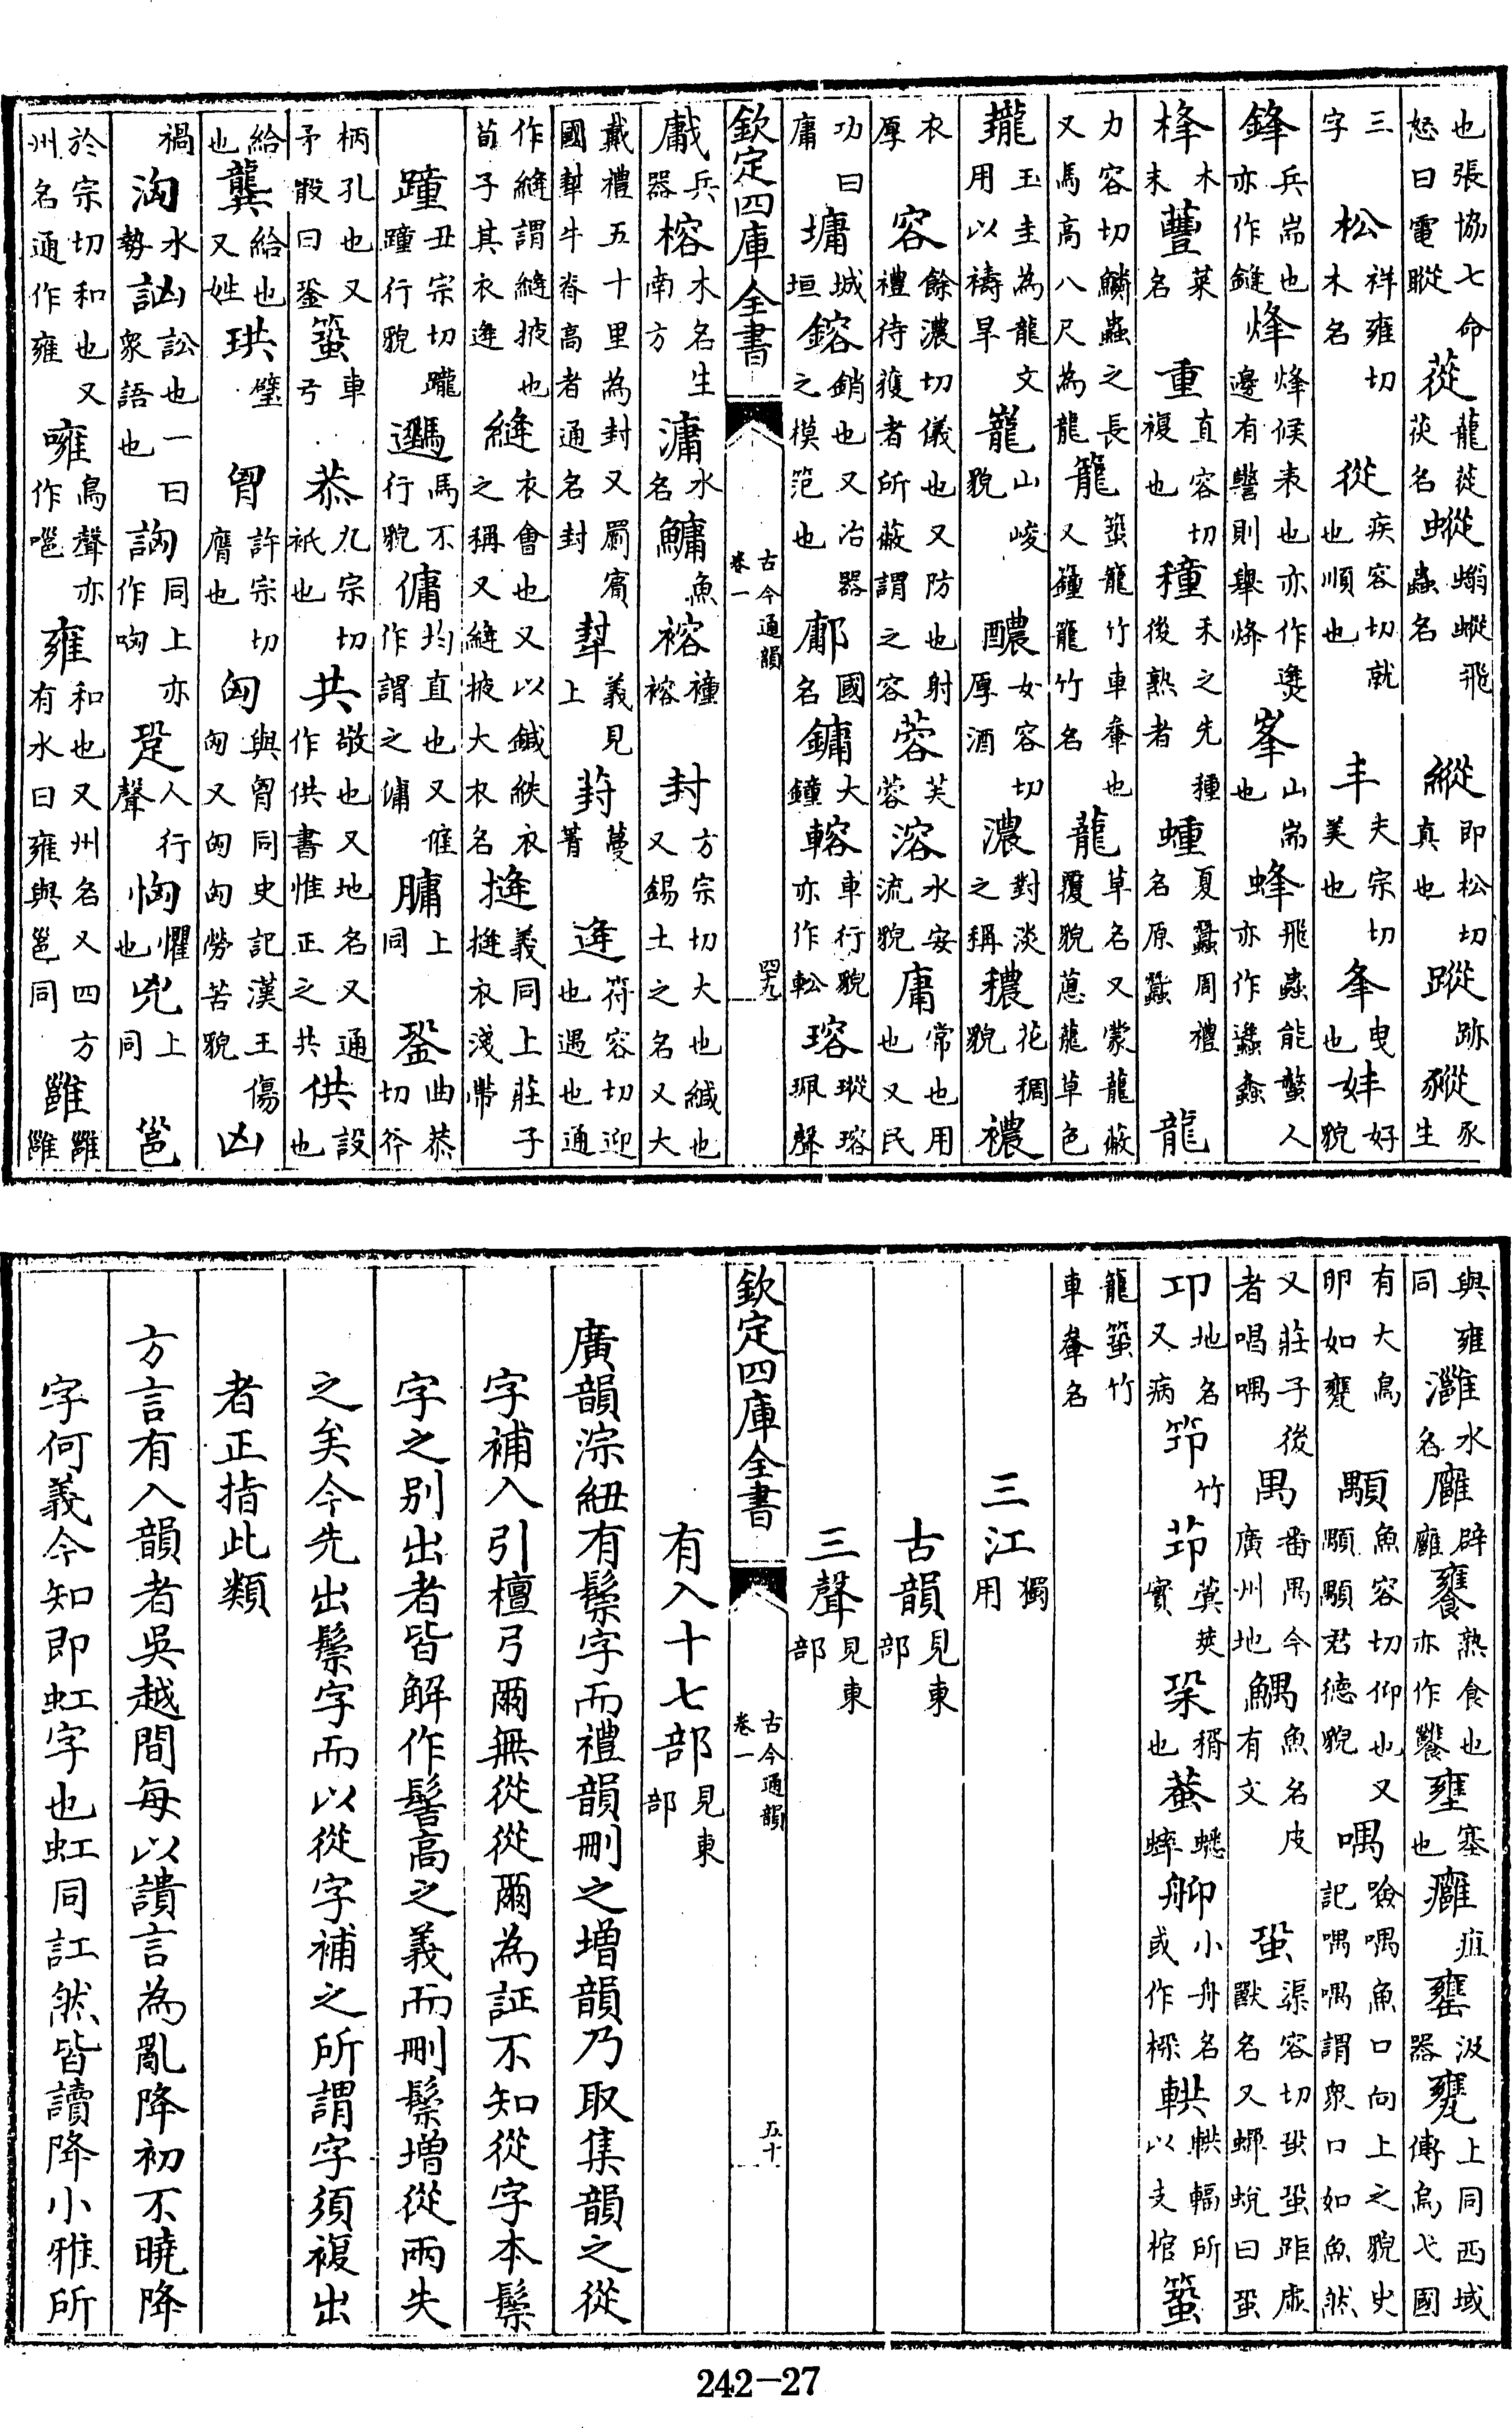 也張協七命怒曰電瞛蓯龍蓯茯名䗥螉䗥飛蟲名縱即松切真也蹤跡豵豕生
三字松祥雍切木名從疾容切就也順也丰夫宗切美也夆曳也妦好貌
鋒兵耑也亦作鏠烽烽候表也亦作㷭邊有警則舉烽峯山耑也蜂飛蟲能螫人亦作蠭䗬
桻木末蘴菜名重直容切複也穜禾之先種後熟者蝩夏蠶周禮名原蠶龍
力容切鱗蟲之長又馬高八尺為龍籠䇬籠竹車軬也又籦籠竹名蘢草名又蒙蘢蔽覆貌蔥蘢草色
瓏玉圭為龍文用以禱旱巃山峻貌醲女容切厚酒濃對淡之稱穠花稠貌襛
衣厚容餘濃切儀也又防也射禮待獲者所蔽謂之容蓉芙蓉溶水安流貌庸常也用也又民
功曰庸墉城垣鎔銷也又冶器之模笵也鄘國名鏞大鐘𨍏車行貌亦作䡥瑢瑽瑢珮聲
欽定四庫全書 古今通韻 卷一 四十九
㦷兵器榕木名生南方滽水名鱅魚褣𧝎褣封方宗切大也緘也又錫土之名又大
戴禮五十里為封又罽賓國犎牛脊高者通名封犎義見上葑蔓菁逢符容切迎也遇也通
作縫謂縫掖也荀子其衣逢縫衣會也又以鍼紩衣之稱又縫掖大衣名摓義同上莊子摓衣淺帶
蹱丑宗切躘蹱行貌馬不行貌傭均直也又傕作謂之傭𦟛上同銎曲恭切斤
柄孔也又矛骹曰銎蛩車弓恭九宗切祇也共敬也又地名又通作供書惟正之共供設也
給也龔給也又姓珙璧胷許宗切膺也匈與胷同史記漢王傷匈又匈匈勞苦貌凶
禍洶水勢訩訟也一曰衆語也訽同上亦作哅跫人行聲恟懼也兇上同邕
於宗切和也又州名通作雍噰鳥聲亦作嗈雍和也又州名又四方有水曰雍與邕同雝雝雝
與雍同灉水名廱辟廱饔熟食也亦作饔壅塞也癰疽罋汲器甕上同西域傳烏弋國
有大鳥卵如甕顒魚容切仰也又顒顒君德貌喁噞喁魚口向上之貌史記喁喁謂衆口如魚然
又莊子後者唱喁禺番禺今廣州地鰅魚名皮有文蛩渠容切蛩蛩距虛獸名又蝍蛻曰蛩
邛地名又病筇竹茚蓂莢實㧬㨋也蛬蟋蟀䑪小舟名或作㮡輁輁輻所以支棺蛩
籠蛩竹車軬名
三江獨用
古韻見東部
三聲見東部
欽定四庫全書 古今通韻 卷一 五十
有入十七部見東部
廣韻淙紐有鬃字而禮韻刪之增韻乃取集韻之從
字補入引檀弓爾無從從爾為証不知從字本鬃
字之別出者皆解作髻高之義而刪鬃增從兩失
之矣今先出鬃字而以從字補之所謂字須複出
者正指此類
方言有入韻者吳越間每以讃言為亂降初不曉降
字何義今知即虹字也虹同訌然皆讀降小雅所
242-27